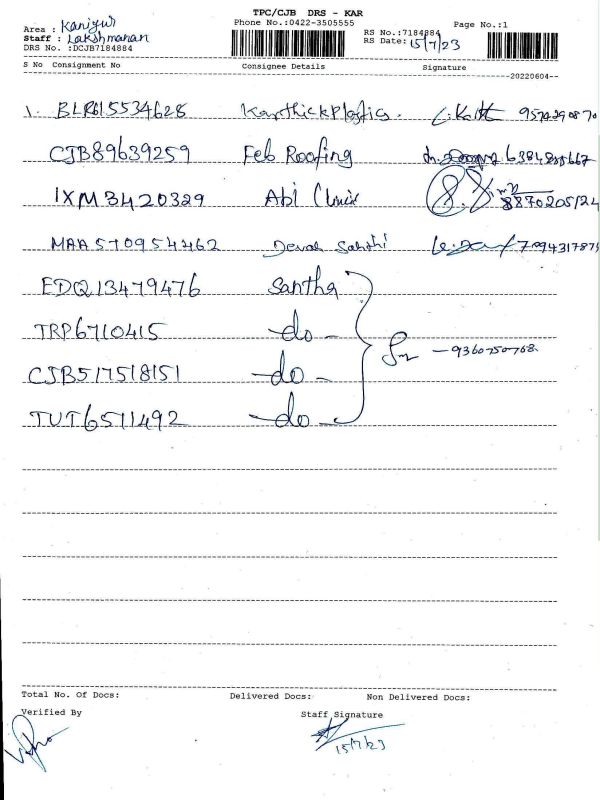 TPC/CJB DRS - KAR
Area : Kaniyur
Phone No.:0422-3505555
Page No.:1
Staff : Lakshmanan
RS No.:7184884
DRS No. :DCJB7184884
RS Date: 15/7/23
S No Consignment No Consignee Details Signature
20220604
1. BLR615534628 Karthick Plastics.
CJB89639259 Feb Roofing
IXM3420329 Abi Clinic 8870205124
MAA570954462 Devah Santhi
EDQ13479476 Santha
TRP6710415 -do-
CJB517518151 -do- -9360750768
TUT6511492 -do-
Total No. Of Docs: Delivered Docs: Non Delivered Docs:
Verified By Staff Signature
15/7/23